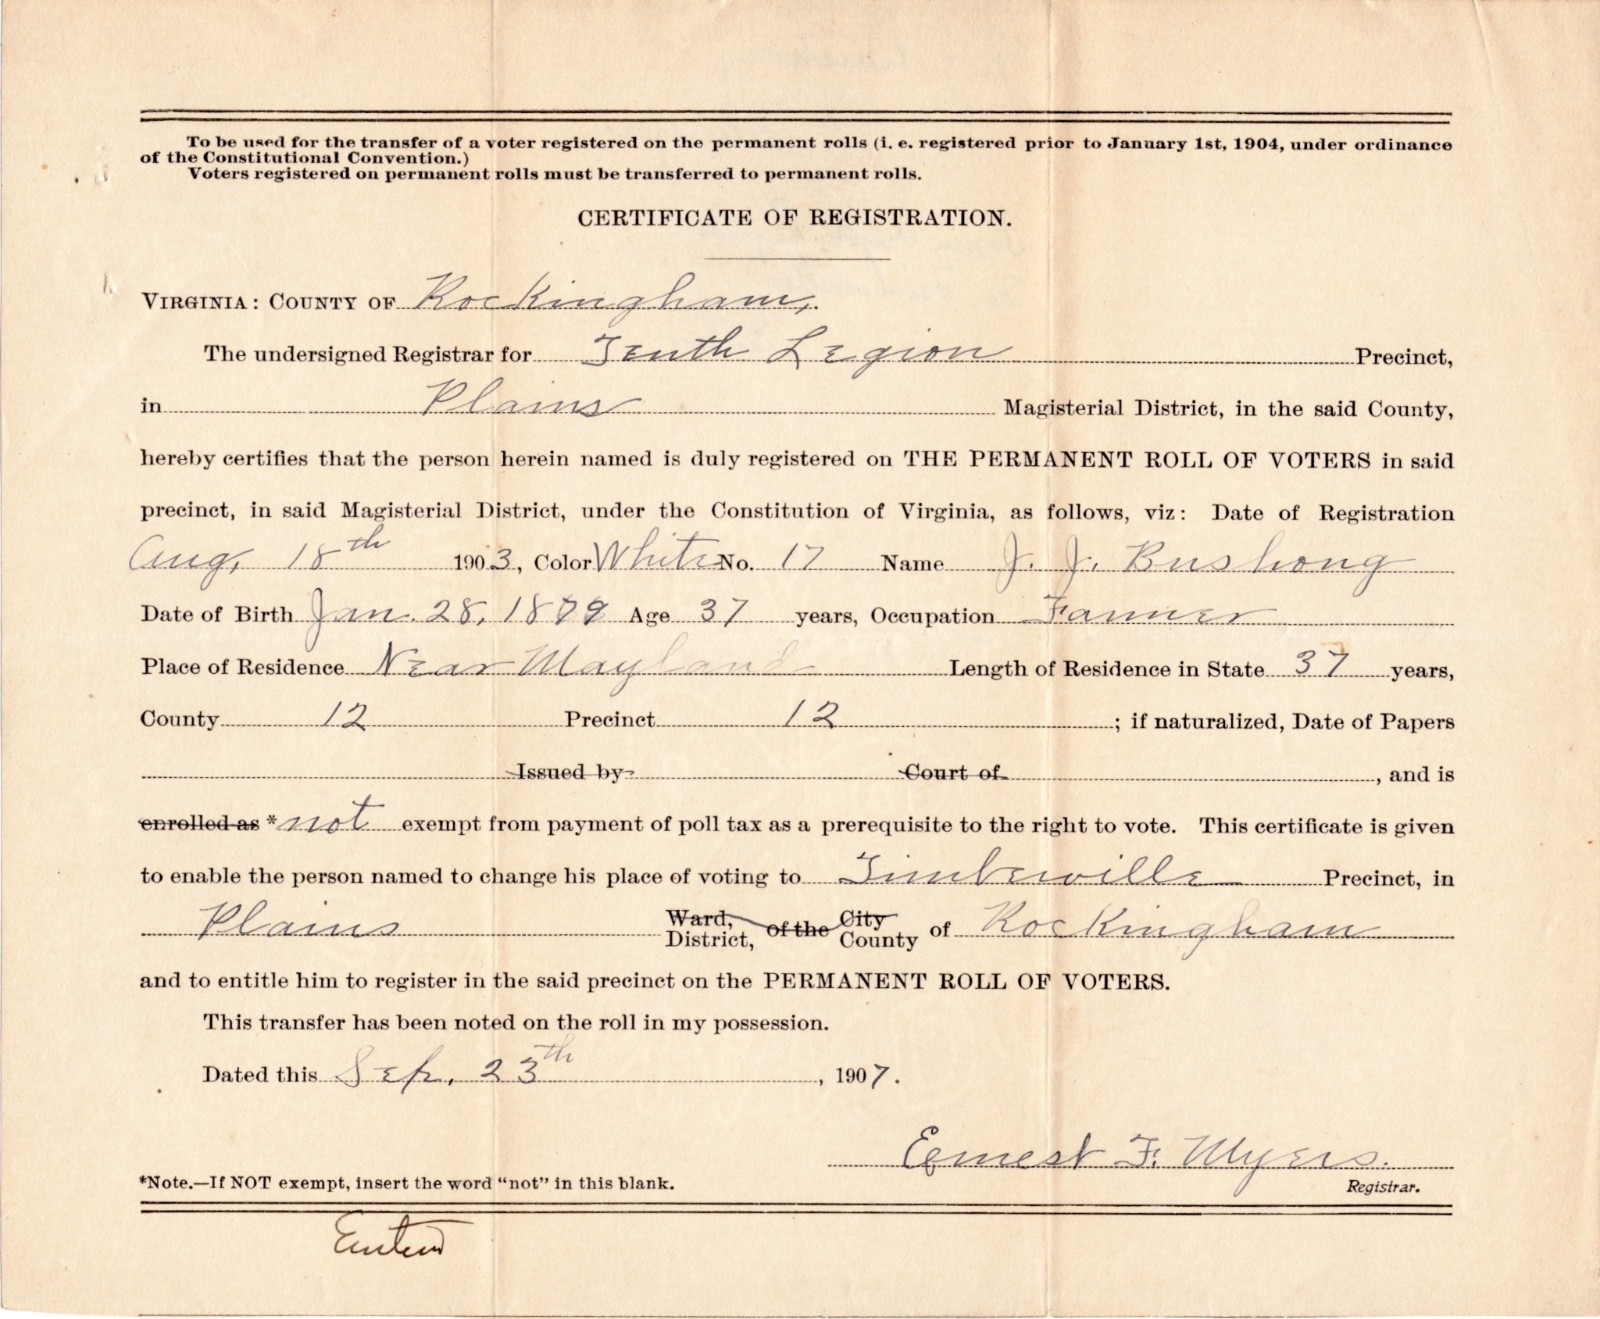 To be used for the transfer of a voter registered on the permanent rolls (i. e. registered prior to January 1st, 1904, under ordinance
of the Constitutional Convention.)
Voters registered on permanent rolls must be transferred to permanent rolls.
CERTIFICATE OF REGISTRATION.
VIRGINIA: COUNTY OF Rockingham,
The undersigned Registrar for Tenth Legion Precinct,
in Plains Magisterial District, in the said County,
hereby certifies that the person herein named is duly registered on THE PERMANENT ROLL OF VOTERS in said
precinct, in said Magisterial District, under the Constitution of Virginia, as follows, viz: Date of Registration
Aug, 18th 1903, Color White No. 17 Name J. J. Bushong
Date of Birth Jan. 28, Age 37 years, Occupation Farmer
Place of Residence Near Mayland Length of Residence in State 37 years,
County 12 Precinct 12; if naturalized, Date of Papers
Issued by Court of, and is
enrolled as *not exempt from payment of poll tax as a prerequisite to the right to vote. This certificate is given
to enable the person named to change his place of voting to Timberville Precinct, in
Plains Ward, District, of the City County of Rockingham
and to entitle him to register in the said precinct on the PERMANENT ROLL OF VOTERS.
This transfer has been noted on the roll in my possession.
Dated this Sep, 23th, 1907.
Ernest F. Myers.
*Note.—If NOT exempt, insert the word "not" in this blank.
Registrar.